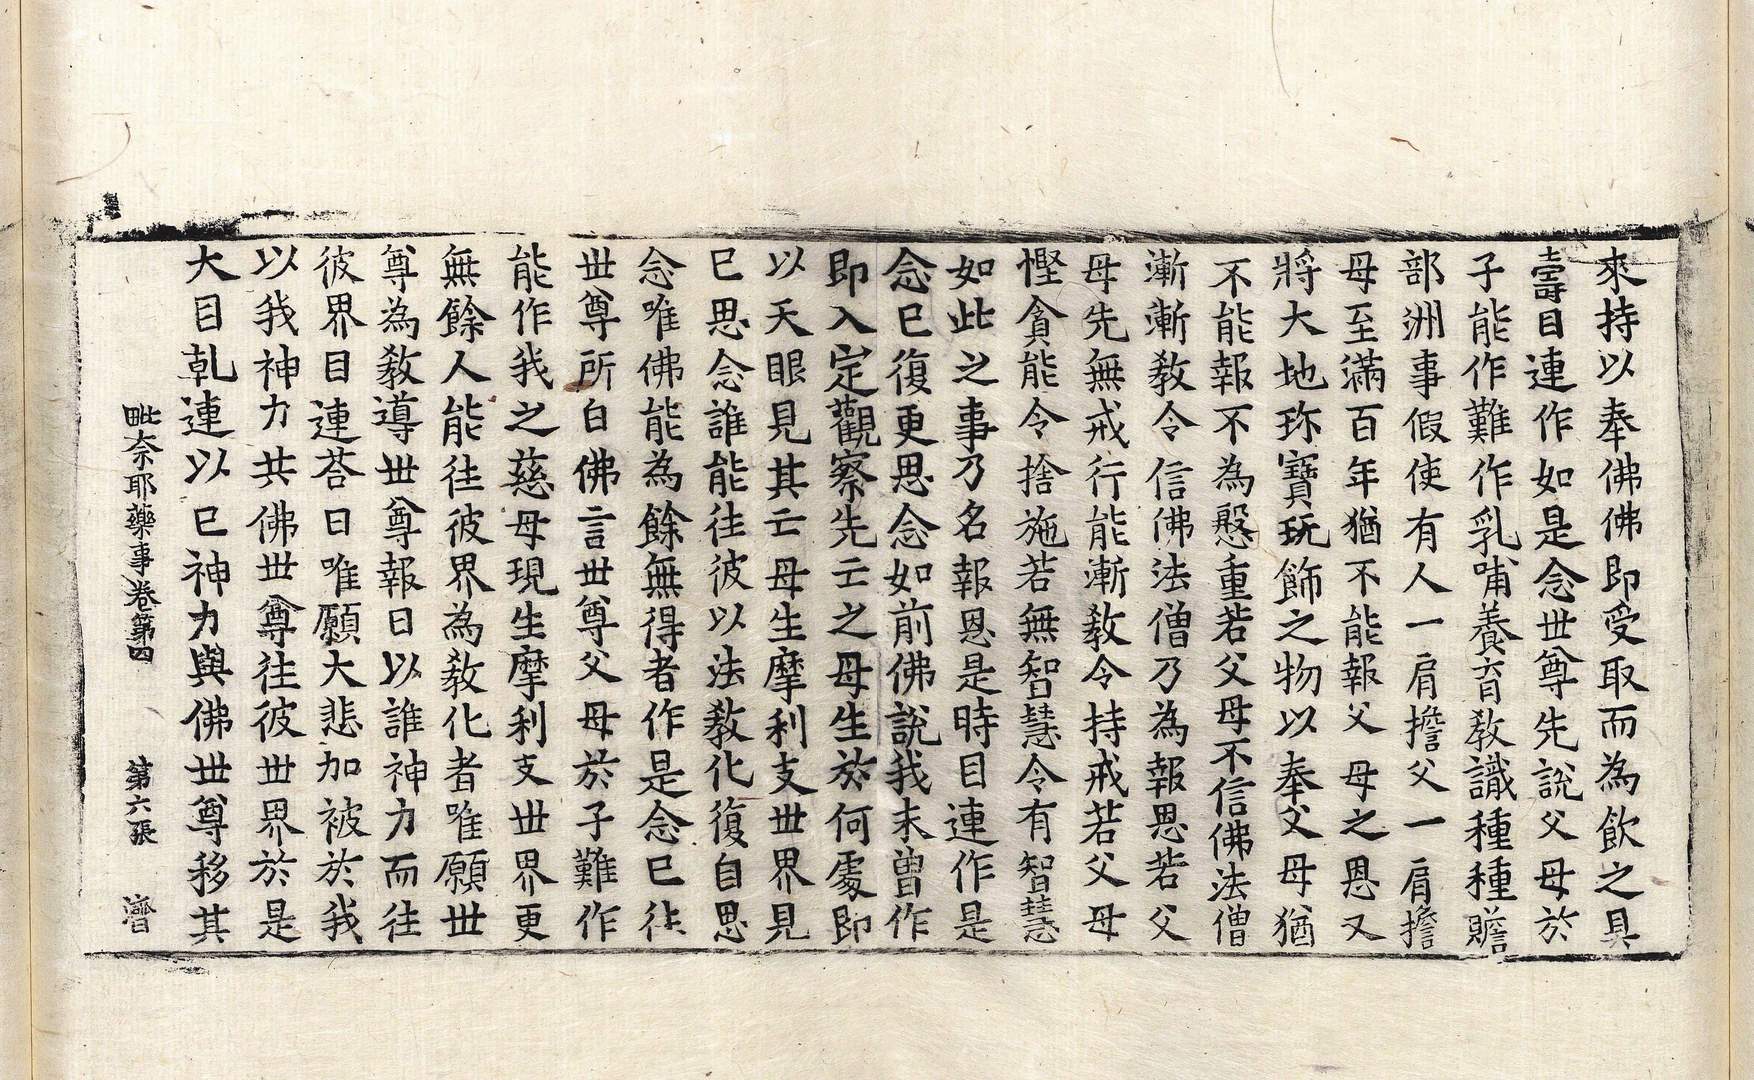 來持以奉佛佛即受取而為飲之具
壽目連作如是念世尊先說父母於
子能作難作乳哺養育教識種種贍
部洲事假使有人一肩擔父一肩擔
母至滿百年猶不能報父母之恩又
將大地珎寶玩飾之物以奉父母猶
不能報不為慇重若父母不信佛法僧
漸漸教令信佛法僧乃為報恩若父
母先無戒行能漸教令持戒若父母
慳貪能令捨施若無智慧令有智慧
如此之事乃名報恩是時目連作是
念已復更思念如前佛說我未曾作
即入定觀察先亡之母生於何處即
以天眼見其亡母生摩利支世界見
已思念誰能往彼以法教化復自思
念唯佛能為餘無得者作是念已往
世尊所白佛言世尊父母於子難作
能作我之慈母現生摩利支世界更
無餘人能往彼界為教化者唯願世
尊為教導世尊報曰以誰神力而往
彼界目連荅曰唯願大悲加被於我
以我神力共佛世尊往彼世界於是
大目乹連以己神力與佛世尊移其
毗奈耶藥事卷第四 第六張 濟